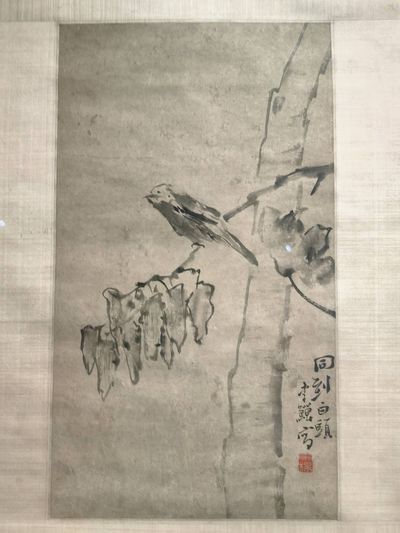 同到白頭
李鱓寫